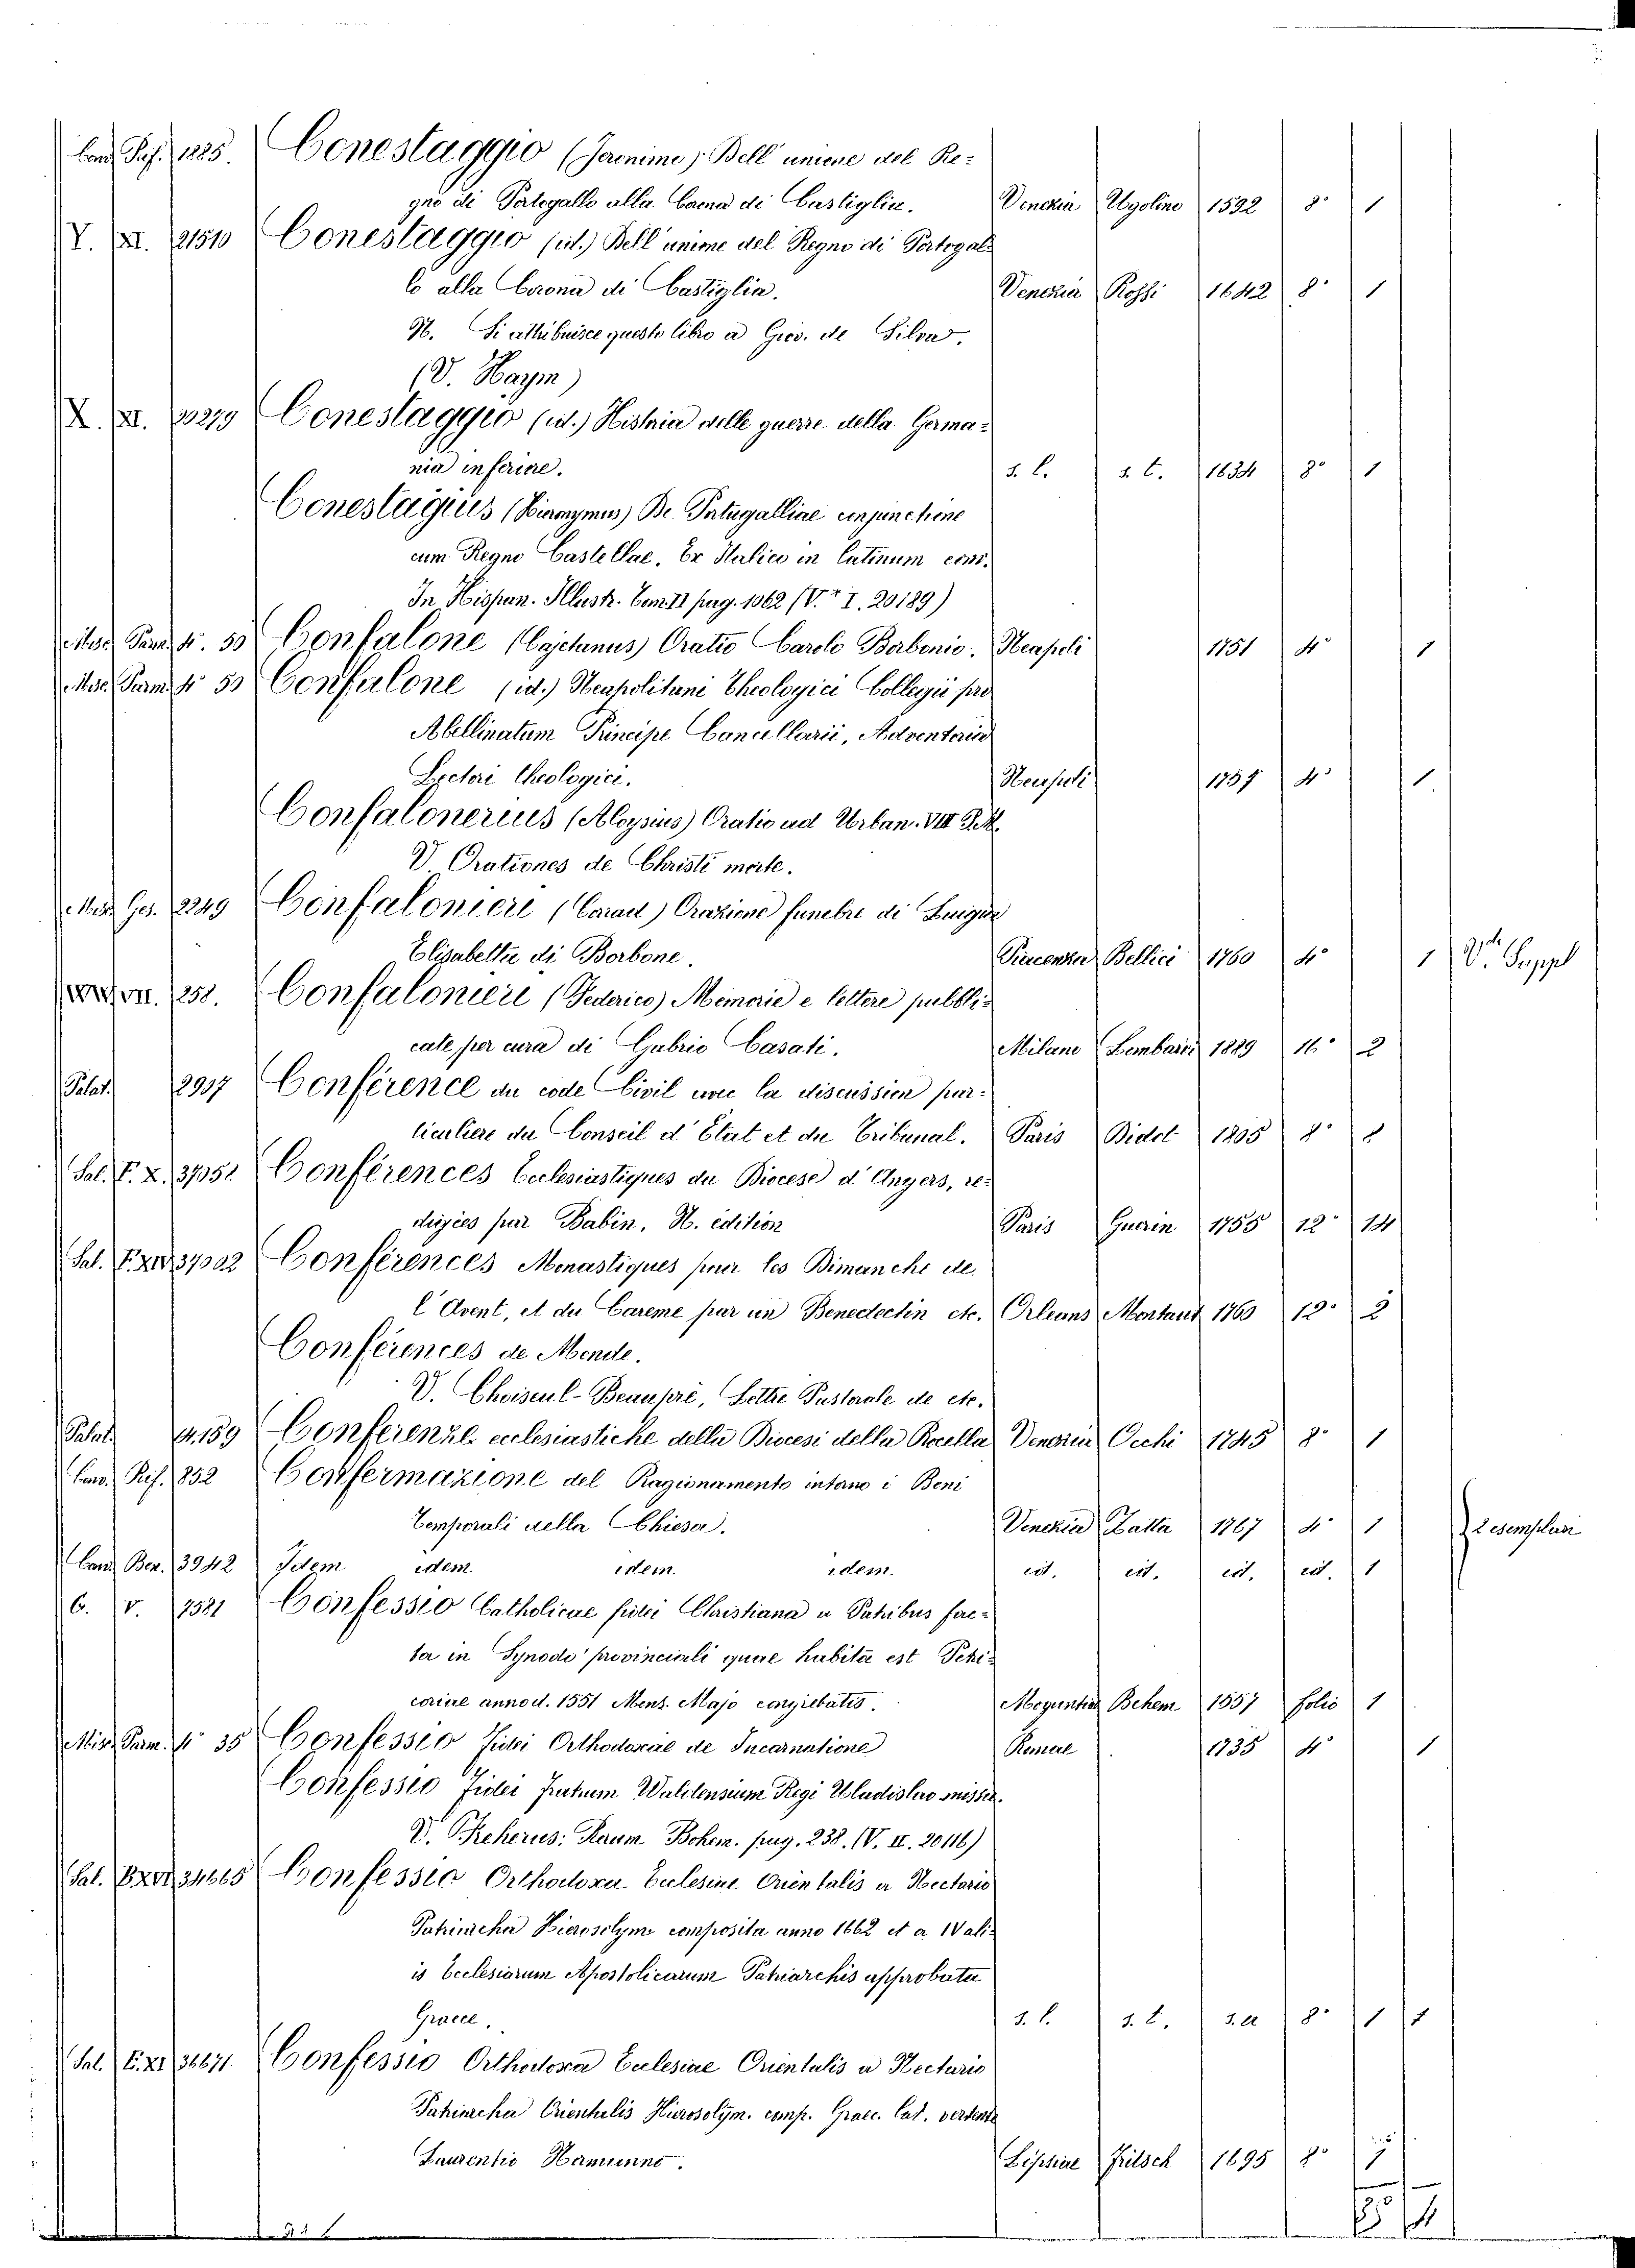 Cand. Rif. 1885. Conestaggio (Jeronimo) Dell' unione del Re-
gno di Portogallo alla Corona di Castiglia. Venezia Ugolino 1592 8° 1
Y. XI. 21510 Conestaggio (id.) Dell' unione del Regno di Portogal-
lo alla Corona di Castiglia. Venezia Rossi 1642 8° 1
N. Si attribuisce questo libro a Giov. de Silva.
(V. Haym)
X. XI. 20279 Conestaggio (id.) Historia delle guerre della Germa-
nia inferiore. s. l. s. t. 1634 8° 1
Conestagius (Hieronymus) De Portugalliae conjunctione
cum Regno Castellae. Ex Italico in latinum conv.
In Hispan. Illustr. Tom. II pag. 1062 (V.+ I. 20189)
Misc. Parm. 4°. 50 Confalone (Cajetanus) Oratio Carolo Borbonio. Neapoli 1751 4° 1
Misc. Parm. 4° 50 Confalone (id.) Neapolitani Theologici Collegii pro
Abellinatum Principe Cancellarii, Adventoria
Lectori theologici. Neapoli 1757 4° 1
Confalonerius (Aloysius) Oratio ad Urban. VIII P.M.
V. Orationes de Christi morte.
Misc. Ges. 2249 Confalonieri (Corrad) Orazione funebre di Luigia
Elisabetta di Borbone. Piacenza Bellici 1760 4° 1 V. Suppl
VII. 258. Confalonieri (Federico) Memorie e lettere pubbli-
cate per cura di Gabrio Casati. Milano 1889 16° 2
Palat. 2997 Conférence du code Civil avec la discussion par-
ticuliere du Conseil d'Etat et du Tribunal. Paris Didot 1805 8° 8
Sal. F. X. 37051 Conférences Ecclesiastiques du Diocese d'Angers, re-
digées par Babin. N. édition Paris Guerin 1755 12° 14
Sal. F. XIV 37022 Conférences Monastiques pour les Dimanche de
l'Avent, et du Careme par un Benedectin etc. Orleans Montaut 1760 12° 2
Conférences de Mende.
V. Choiseul-Beaupré, Lettre Pastorale de etc.
Palat. 14.159 Conferenze ecclesiastiche della Diocesi della Rocella Venezia Occhi 1745 8° 1
Cand. Rif. 852 Confermazione del Ragionamento intorno i Beni
Temporali della Chiesa. Venezia Zatta 1767 4° 1 2 esemplari
Cand. Ben. 3942 Idem idem idem idem id. id. id. id. 1
C. V. 7581 Confessio Catholicae fidei Christiana a Patribus fac-
ta in Synodo provinciali quae habita est Petri-
coviae anno d. 1551 Mens. Majo congretatis. Moguntiae Behem 1557 folio 1
Misc. Parm. 4° 35 Confessio Fidei Orthodoxae de Incarnatione Romae 1735 4° 1
Confessio Fidei Fratrum Waldensium Regi Uladislao missa.
V. Freherus: Rerum Bohem. pag. 238. (V. II. 20116)
Sal. 34665 Confessio Orthodoxa Ecclesiae Orientalis a Nectario
Patriarcha Hierosolym. composita anno 1662 et a Wali-
is Ecclesiarum Apostolicarum Patriarchis approbata
Graece. s. l. s. t. s. a 8° 1 1
Sal. E. XI 36671. Confessio Orthodoxa Ecclesiae Orientalis a Nectario
Patriarcha Orientalis Hierosolym. comp. Graec. Lat. vertente
Laurentio Normanno. Lipsiae Fritsch 1695 8° 1